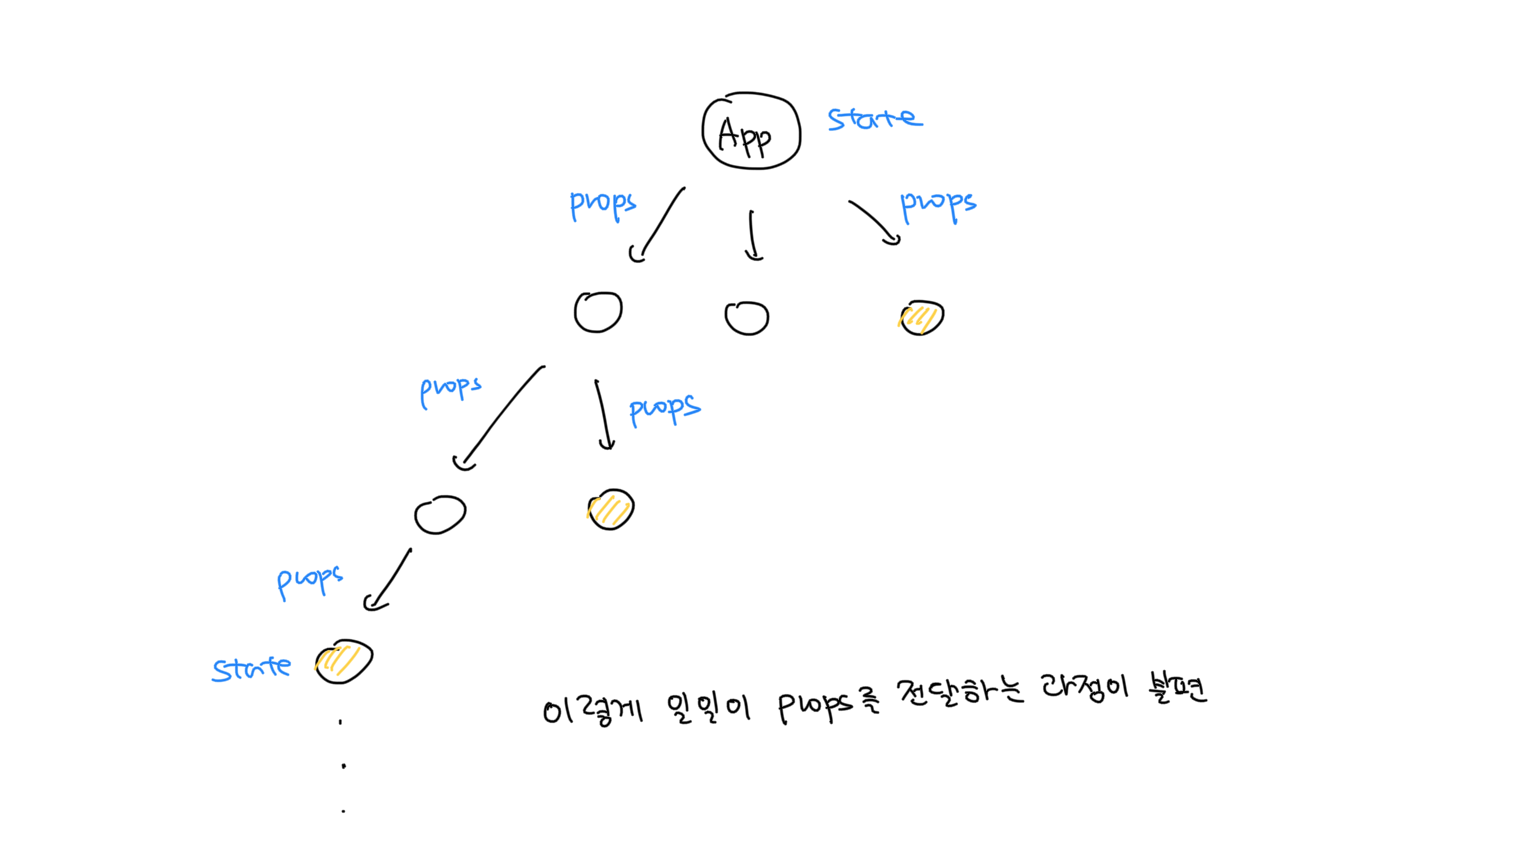 App
state
props
props
props
props
props
state
이렇게 일일이 props를 전달하는 과정이 불편